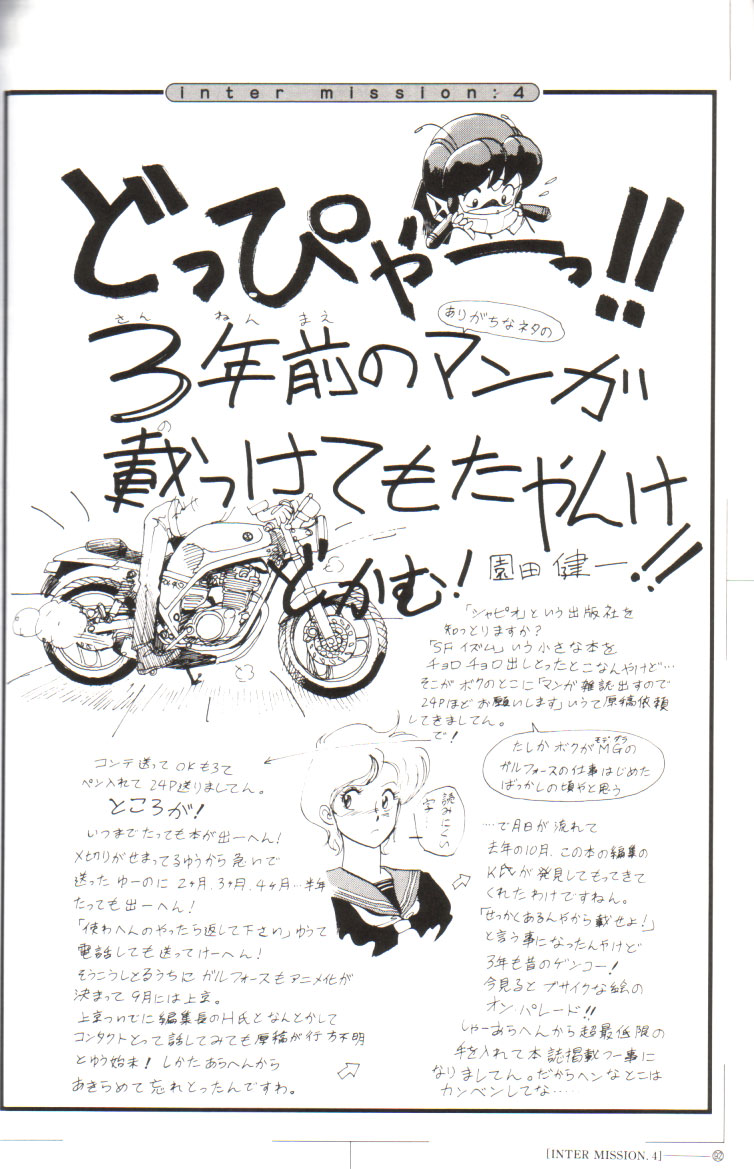 inter mission:4
どっぴゃーっ!!
さん ねん まえ
3年前のマンガ
ありがちなネタの
の
載っけてもたやんけ!!
どかむ!
園田健一
「シャピオ」という出版社を
知っとりますか?
「SFイズム」いう小さな本を
チョロチョロ出しとったとこなんやけど…
そこがボクのとこに「マンガ雑誌出すので
24Pほどお願いします」いうて原稿依頼
してきましてん。
で!
たしかボクがMGの
モデグラ
ガルフォースの仕事はじめた
ばっかしの頃やと思う
コンテ送ってOKもろて
ペン入れて24P送りましてん。
ところが!
いつまでたっても本が出ーへん!
〆切りがせまってるゆうから急いで
送ったゆーのに2ヶ月、3ヶ月、4ヶ月…半年
たっても出ーへん!
「使わへんのやったら返して下さい」ゆうて
電話しても送ってけーへん!
そうこうしとるうちにガルフォースもアニメ化が
決まって9月には上京。
上京ついでに編集長のH氏となんとかして
コンタクトとって話してみても原稿が行方不明
とゆう始末!しかたあらへんから
あきらめて忘れとったんですわ。
読みにくい
字…
…で月日が流れて
去年の10月、この本の編集の
K氏が発見してもってきて
くれたわけですねん。
「せっかくあるんやから載せよ!」
と言う事になったんやけど
3年も昔のゲンコー!
今見るとブサイクな絵の
オン・パレード!!
しゃーあらへんから超最低限の
手を入れて本誌掲載つー事に
なりましてん。だからヘンなとこは
カンベンしてな……
[INTER MISSION. 4]
92